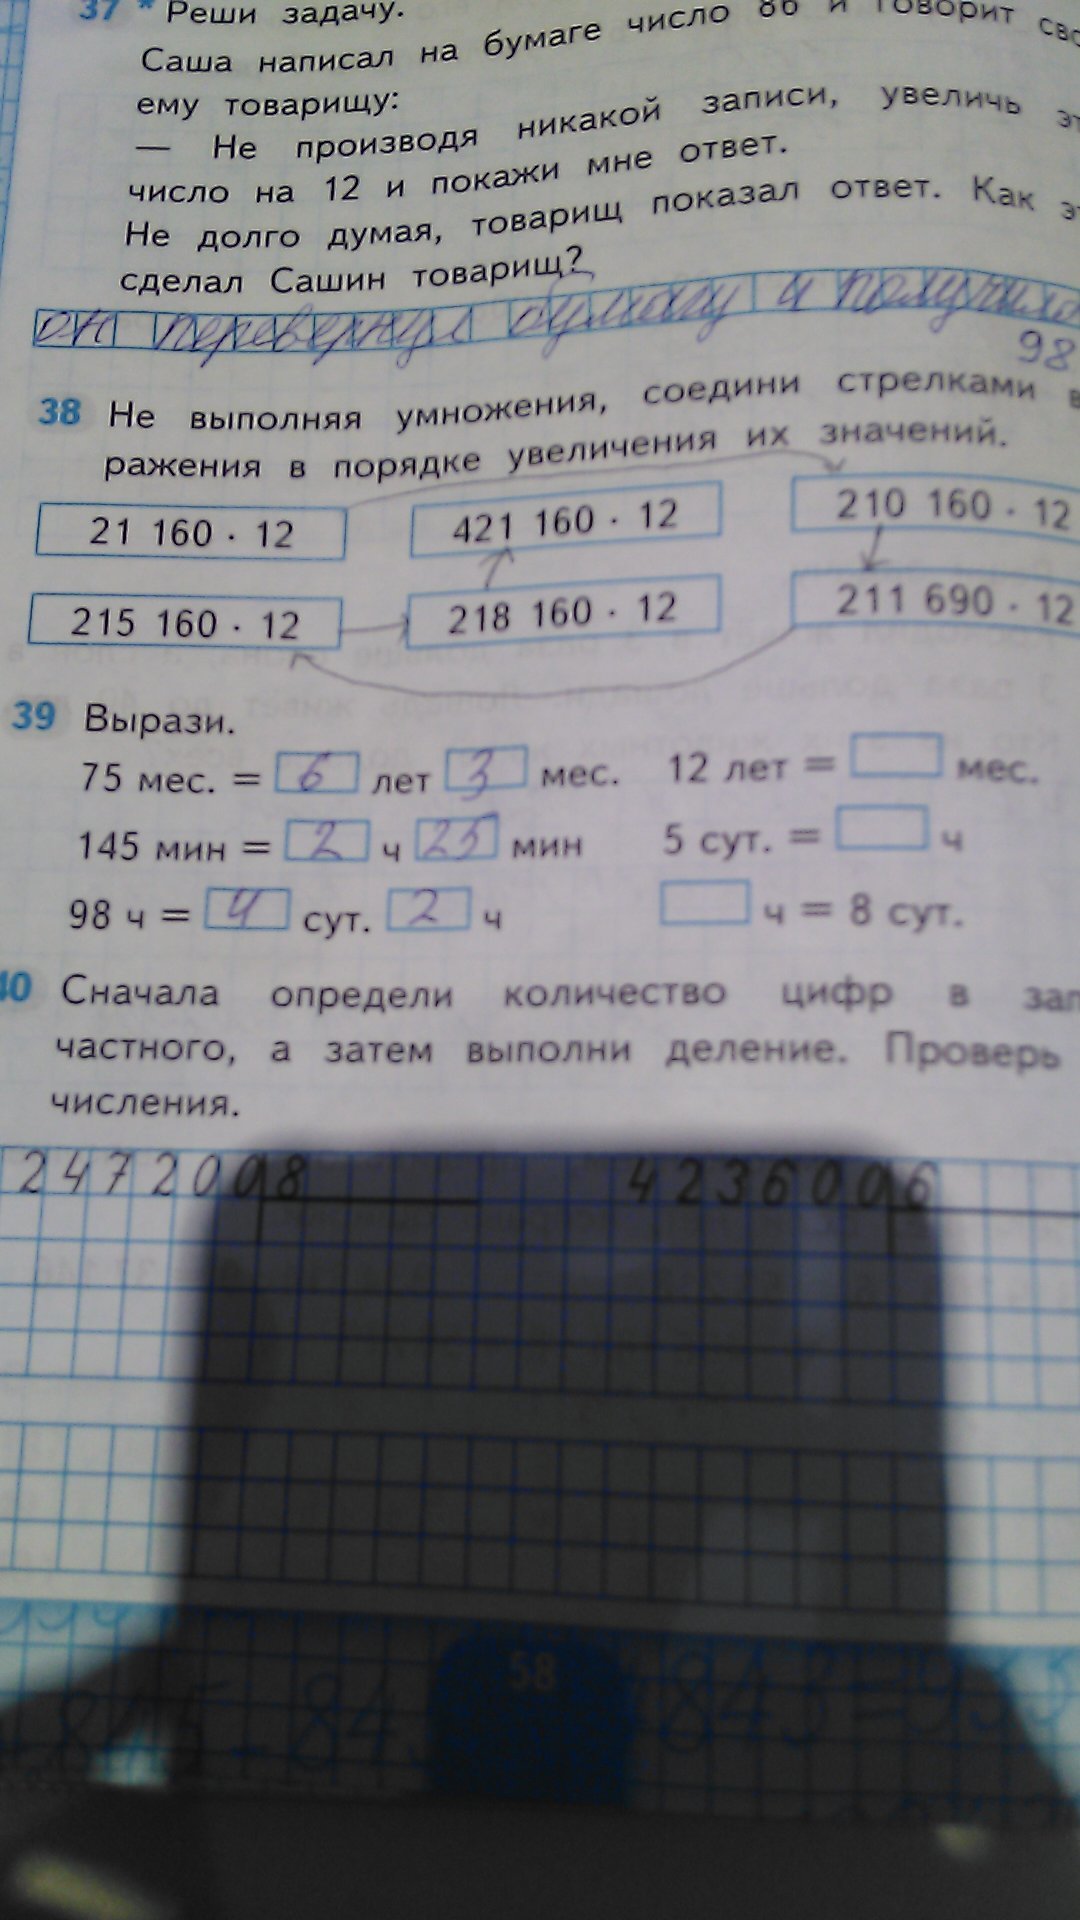 37 * Реши задачу.
Саша написал на бумаге число 86 и говорит сво
ему товарищу:
— Не производя никакой записи, увеличь эт
число на 12 и покажи мне ответ.
Не долго думая, товарищ показал ответ. Как эт
сделал Сашин товарищ?
он перевернул бумагу и получилось
98
38 Не выполняя умножения, соедини стрелками в
ражения в порядке увеличения их значений.
21 160 · 12 421 160 · 12 210 160 · 12
215 160 · 12 218 160 · 12 211 690 · 12
39 Вырази.
75 мес. = 6 лет 3 мес. 12 лет = мес.
145 мин = 2 ч 25 мин 5 сут. = ч
98 ч = 4 сут. 2 ч ч = 8 сут.
40 Сначала определи количество цифр в зап
частного, а затем выполни деление. Проверь
числения.
247200 8 423600 6
58